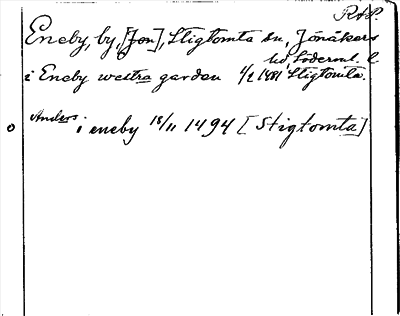 RAP.
Eneby, by, [Jon], Stigtomta sn, Jönåkers
hd, Söderml. l
i Eneby westra garden 4/2 1481 Stigtomta.
Anders i eneby 18/11 1494 [Stigtomta]